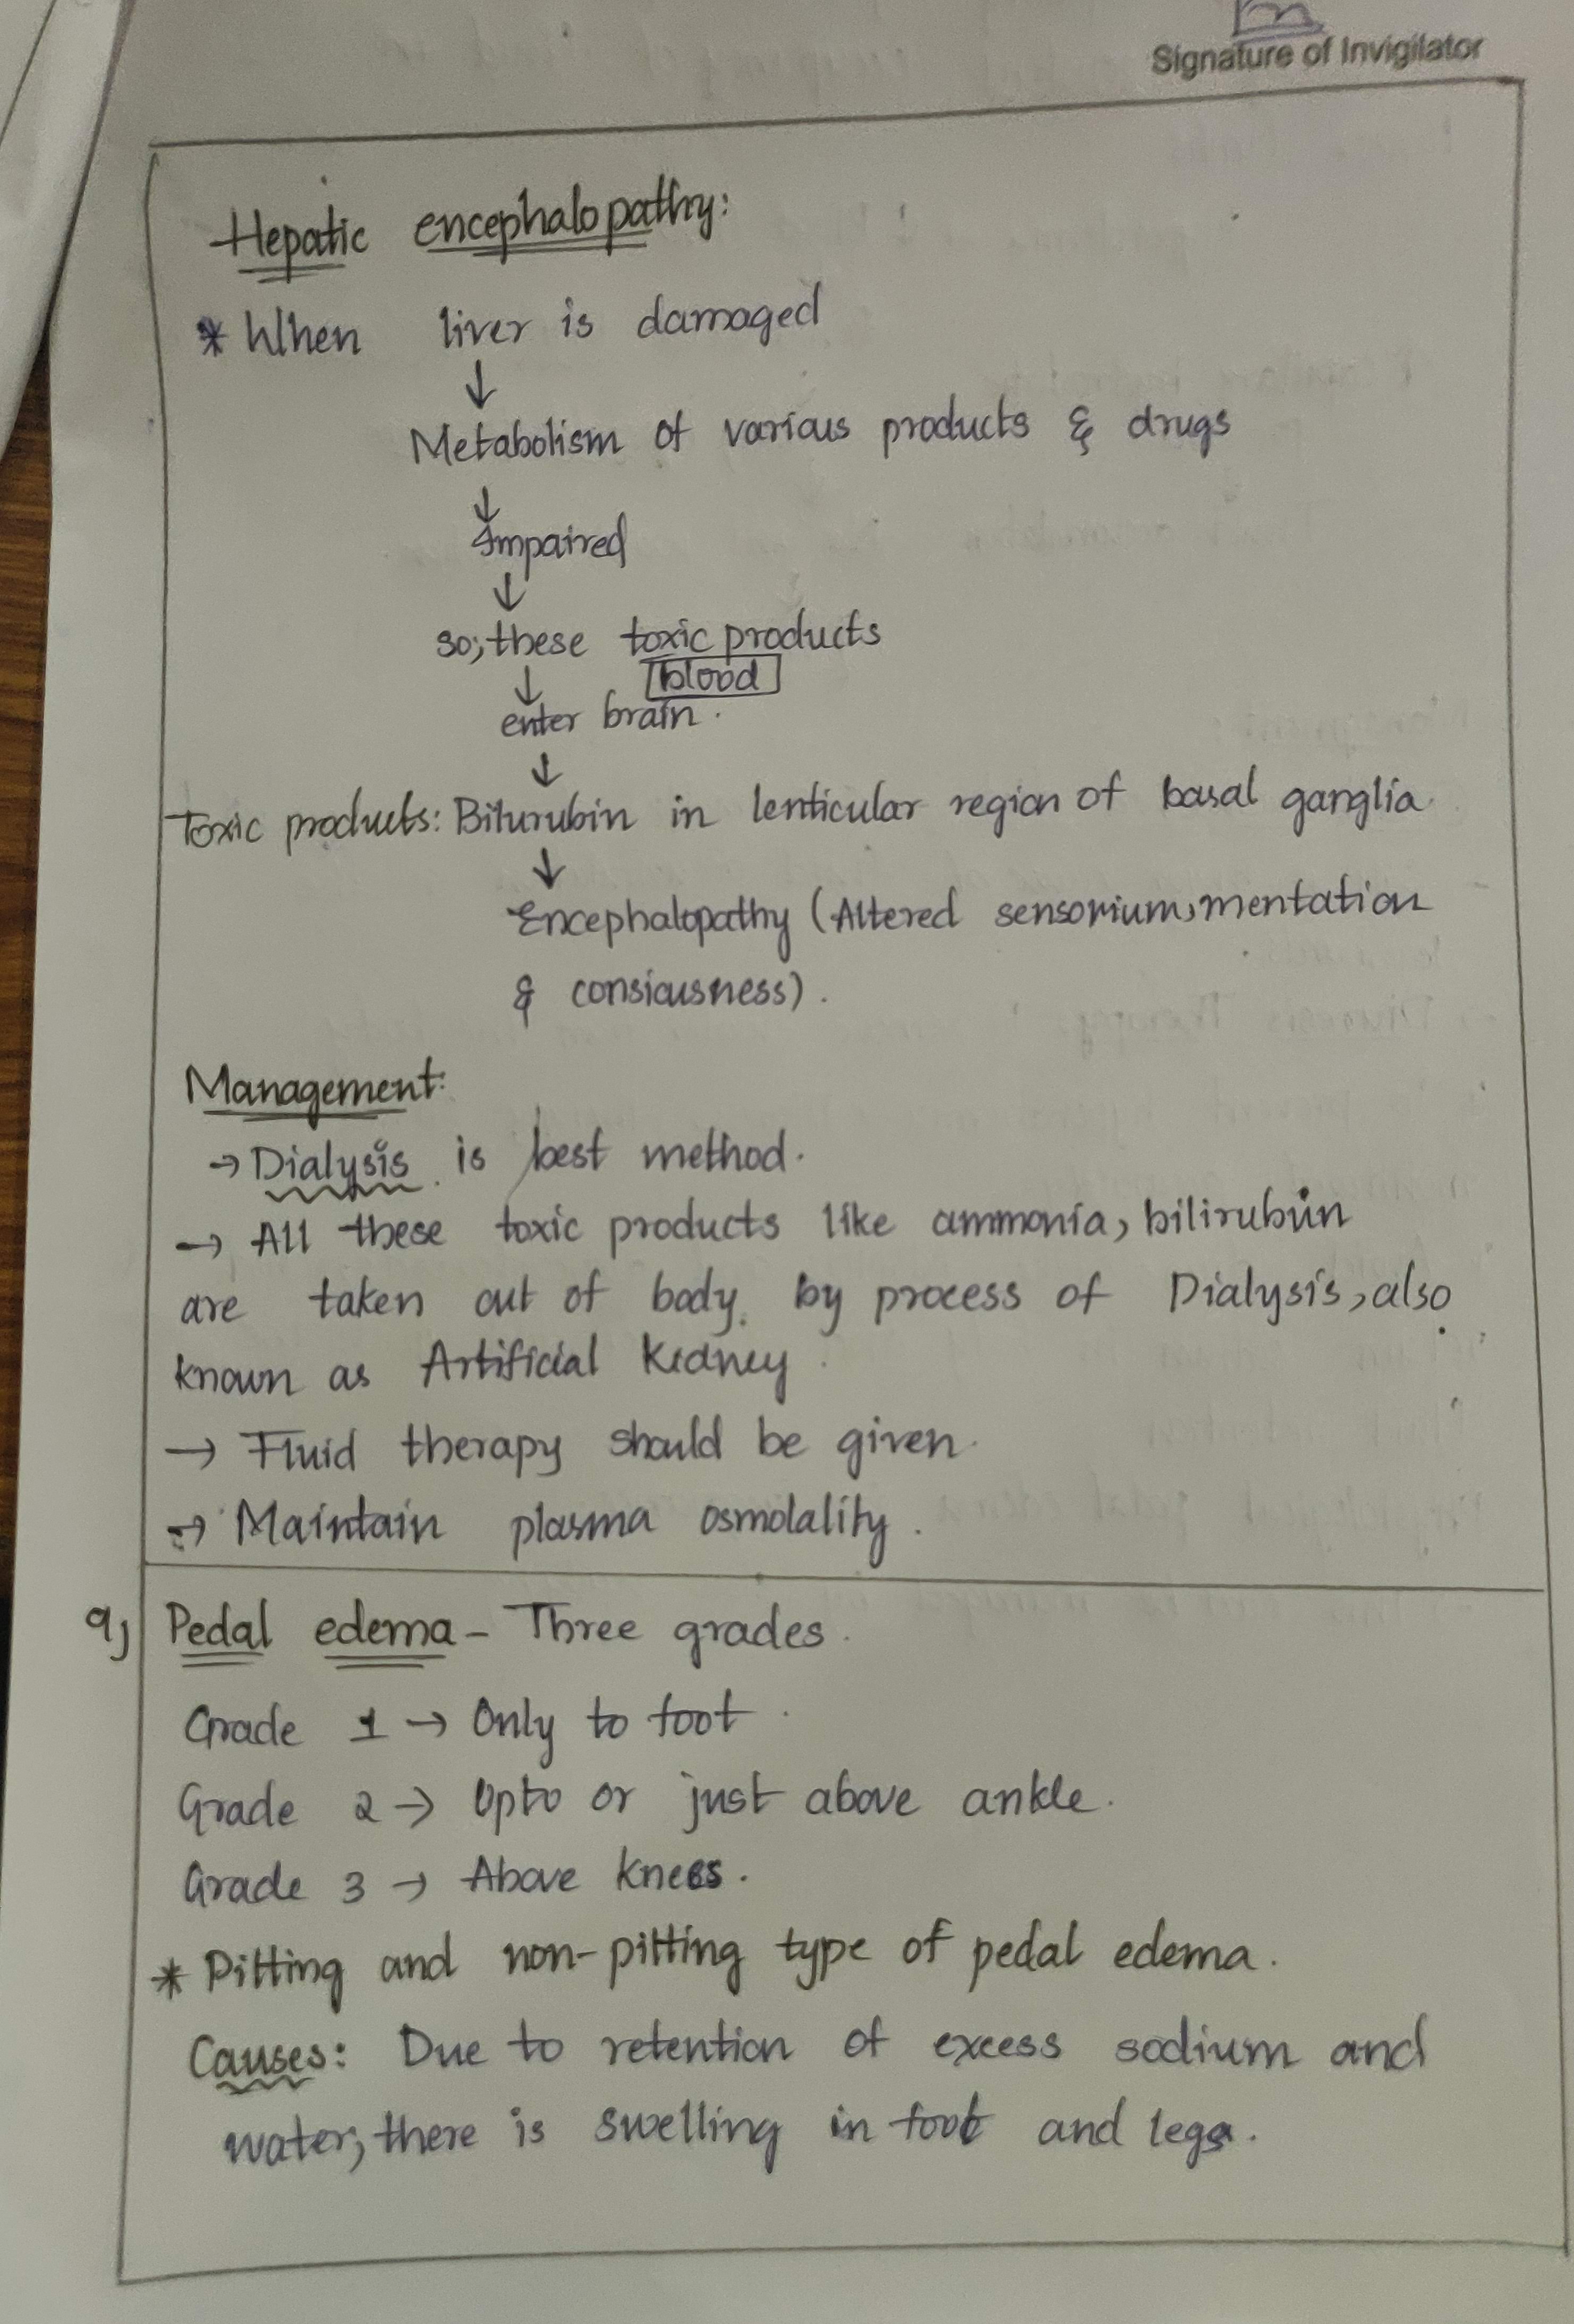 Signature of Invigilator
Hepatic encephalopathy:
* When liver is damaged
↓
Metabolism of various products & drugs
↓
Impaired
↓
so, these toxic products
↓ blood
enter brain.
↓
Toxic products: Bilurubin in lenticular region of basal ganglia.
↓
Encephalopathy (Altered sensorium, mentation
& consiousness).
Management:
→ Dialysis is best method.
→ All these toxic products like ammonia, bilirubin
are taken out of body. by process of Dialysis, also
known as Artificial Kidney.
→ Fluid therapy should be given.
→ Maintain plasma osmolality.
9) Pedal edema - Three grades.
Grade 1 → Only to foot.
Grade 2 → Upto or just above ankle.
Grade 3 → Above knees.
* Pitting and non-pitting type of pedal edema.
Causes: Due to retention of excess sodium and
water, there is swelling in foot and legs.